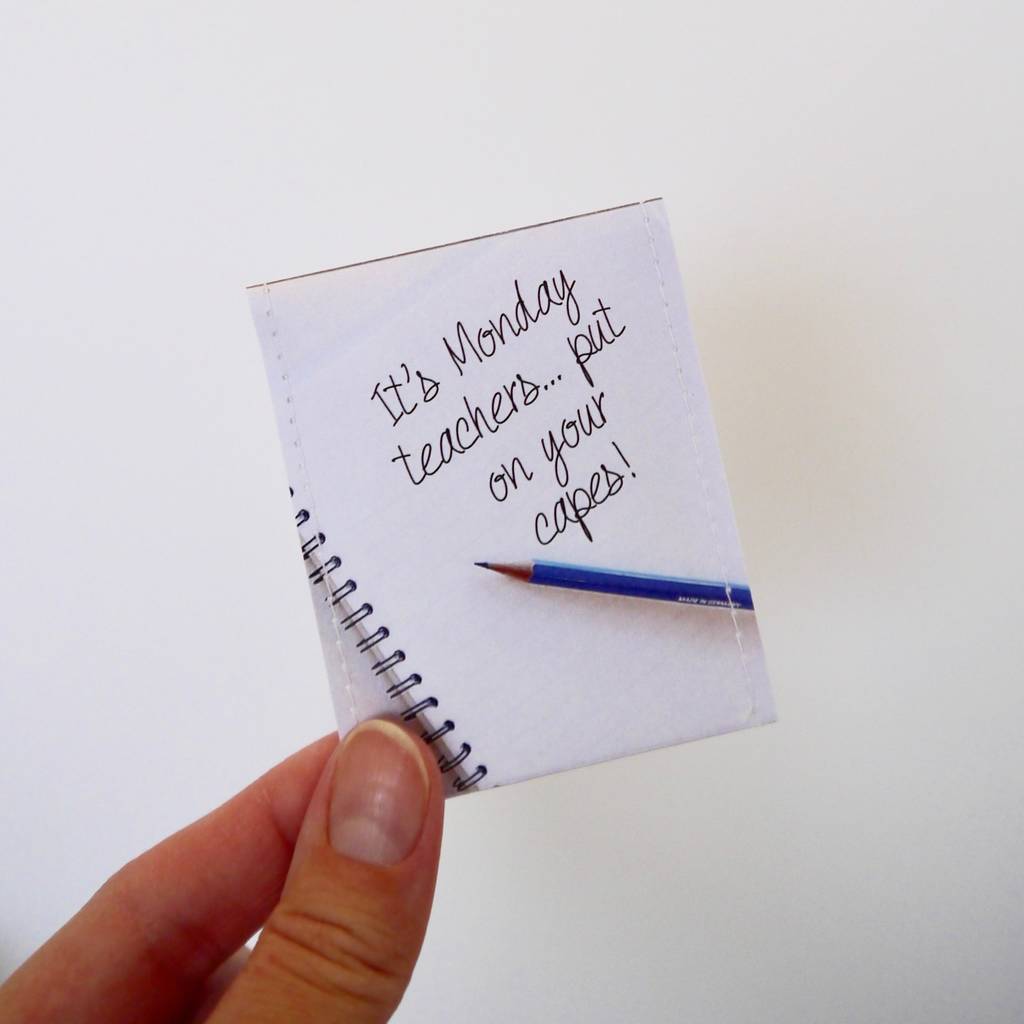 It's Monday
teachers... put
on your
capes!